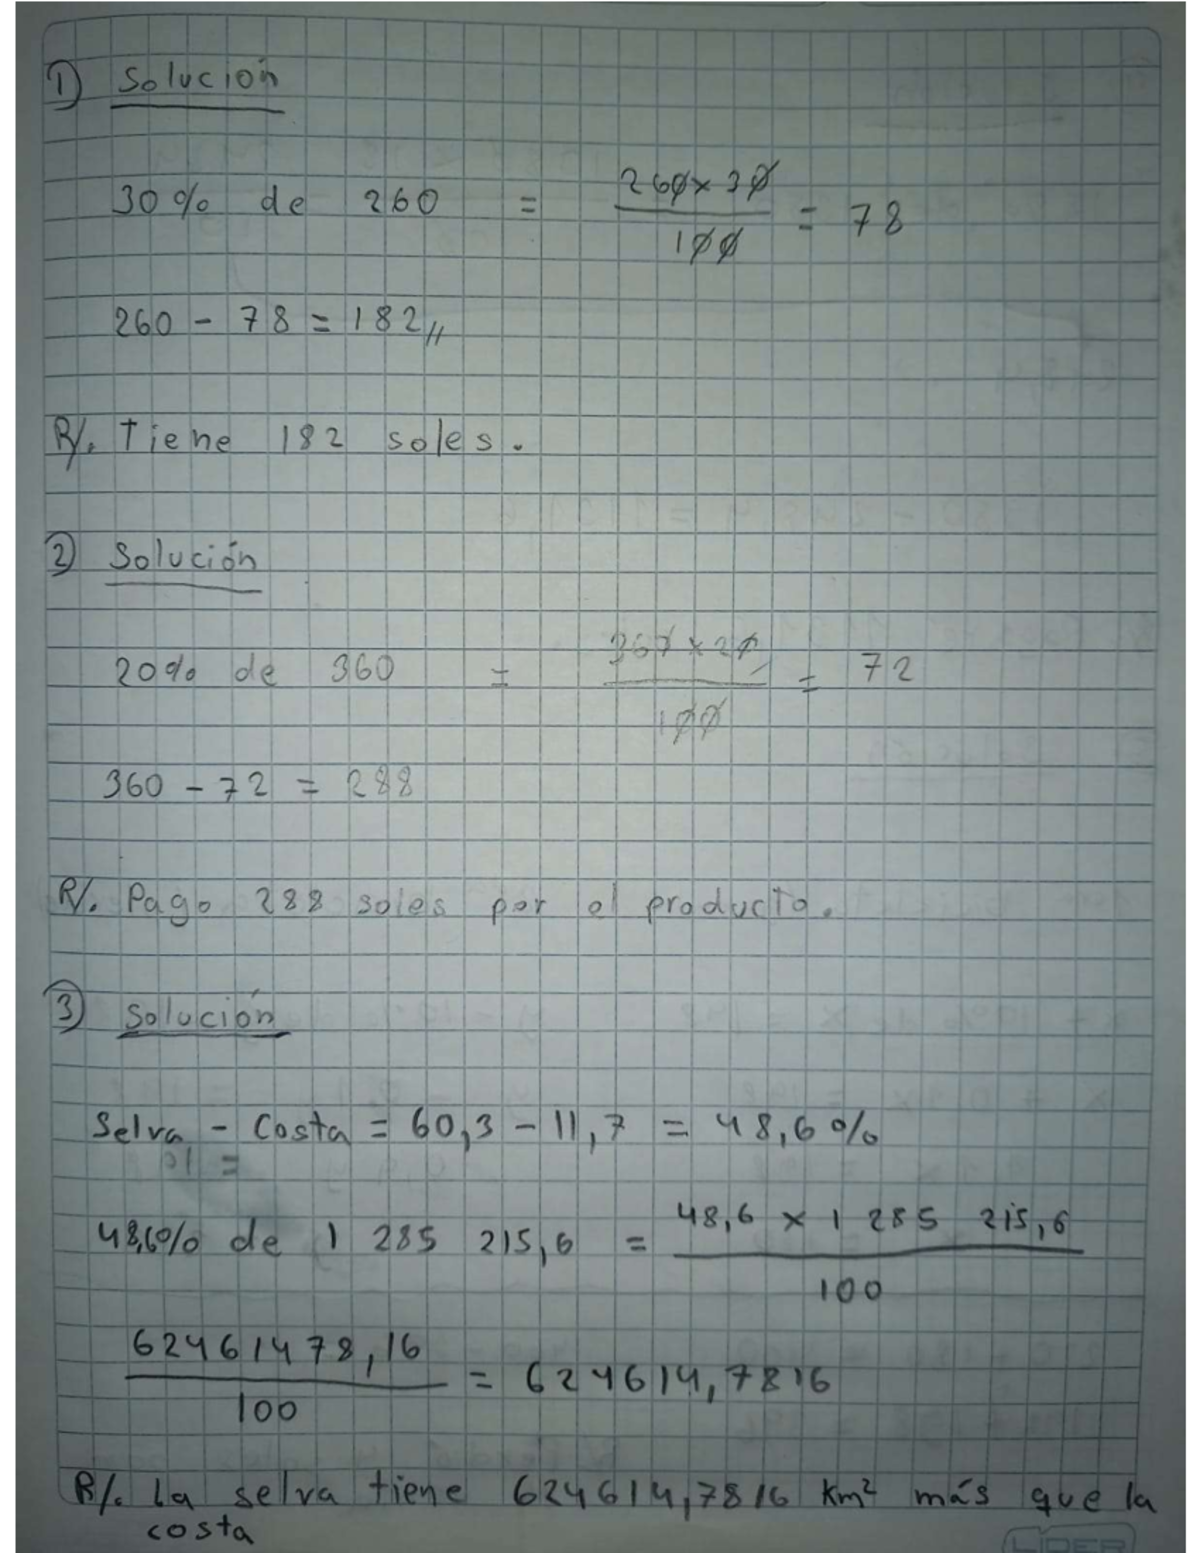 1) Solución
30% de 260 = 260 x 30 / 100 = 78
260 - 78 = 182,,
R/. Tiene 182 soles.
2) Solución
20% de 360 = 360 x 20 / 100 = 72
360 - 72 = 288
R/. Pago 288 soles por el producto.
3) Solución
Selva - Costa = 60,3 - 11,7 = 48,6%
48,6% de 1 285 215,6 = 48,6 x 1 285 215,6 / 100
62461478,16 / 100 = 624614,7816
R/. La selva tiene 624614,7816 km² más que la
costa
LIDER